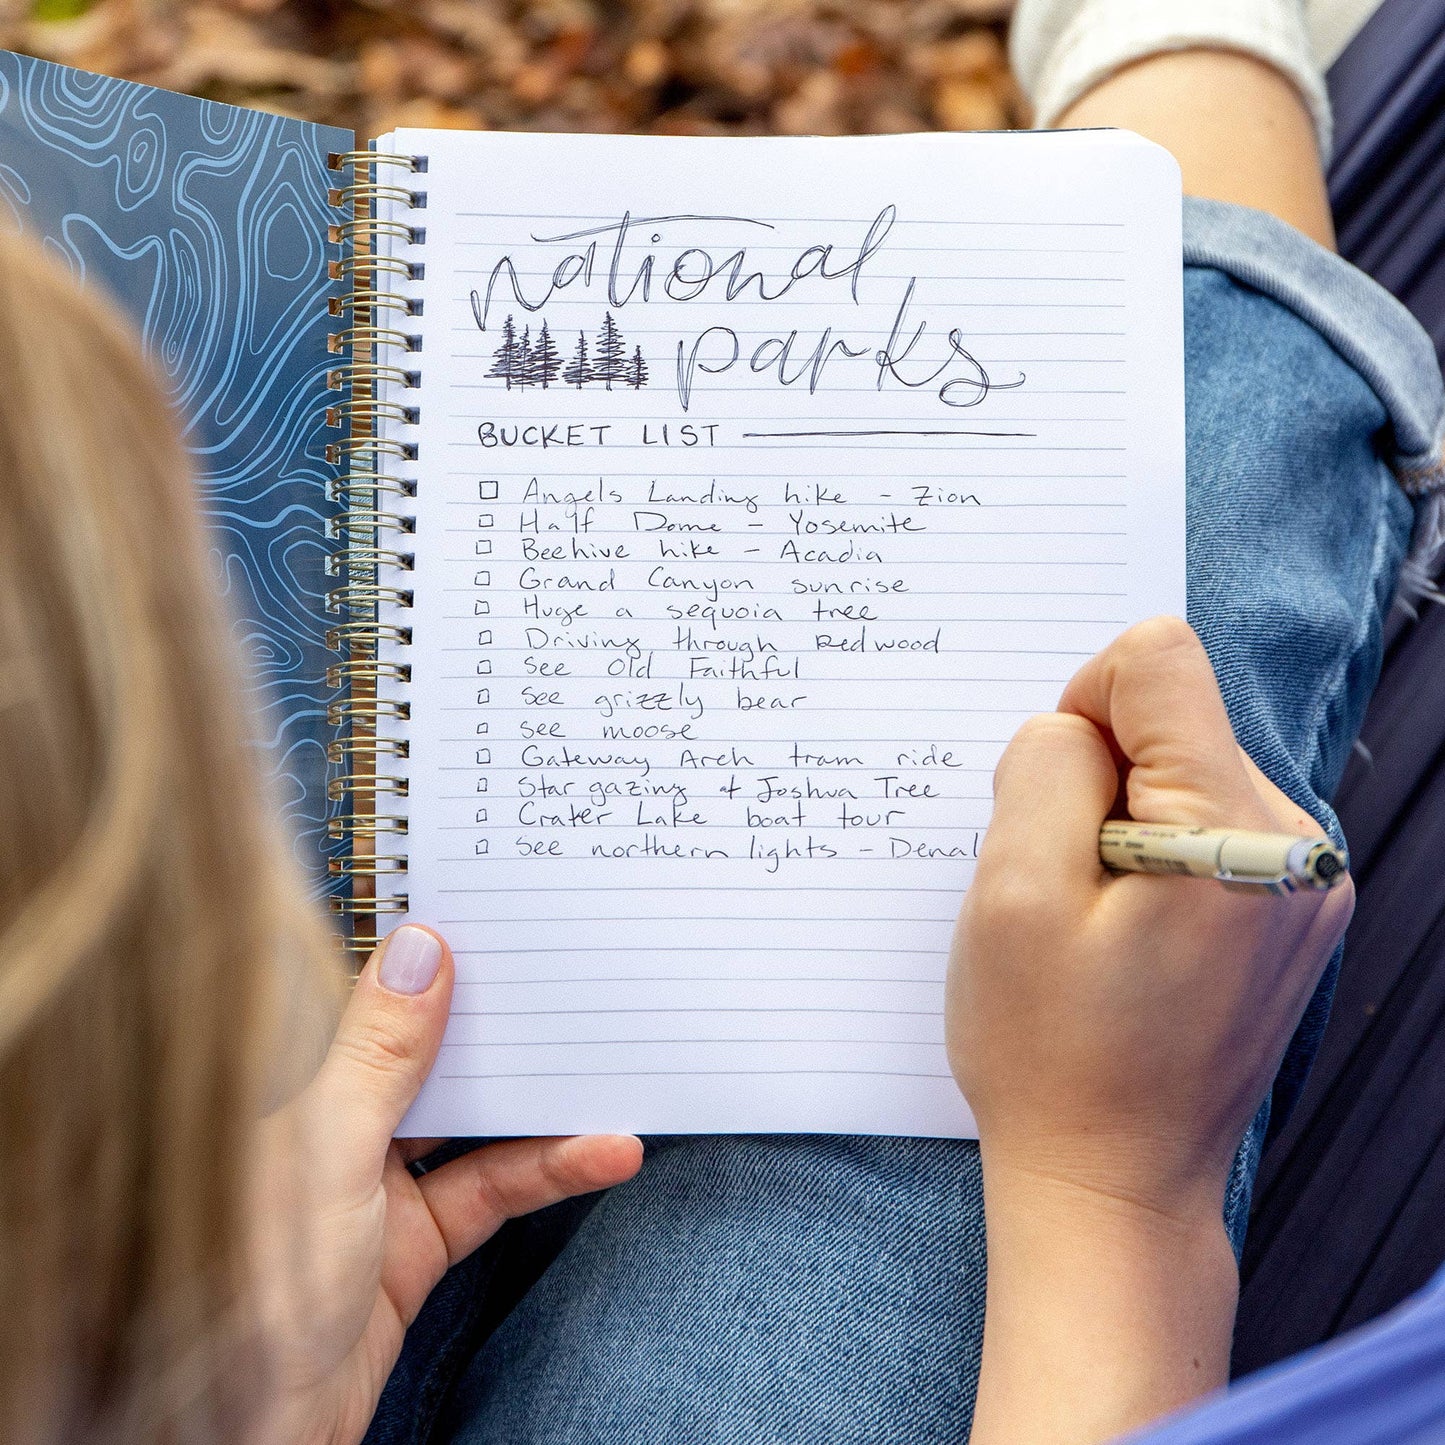 national
parks
BUCKET LIST
Angels Landing hike - Zion
Half Dome - Yosemite
Beehive hike - Acadia
Grand Canyon sunrise
Huge a sequoia tree
Driving through Redwood
See Old Faithful
See grizzly bear
See moose
Gateway Arch tram ride
Star gazing at Joshua Tree
Crater Lake boat tour
See northern lights - Denal